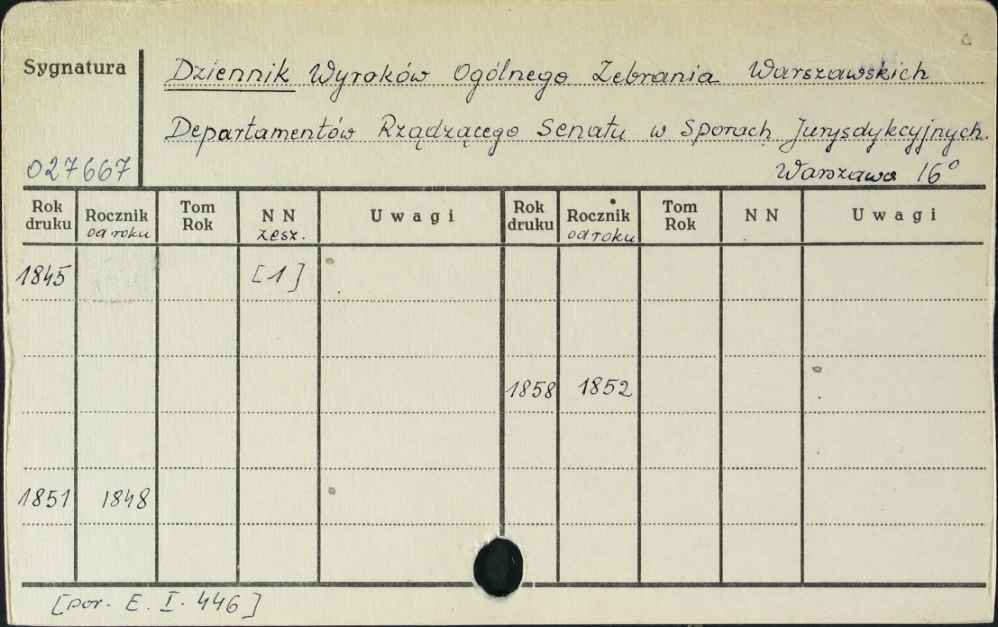 Sygnatura
Dziennik Wyroków Ogólnego Zebrania Warszawskich
Departamentów Rządzącego Senatu w Sporach Jurysdykcyjnych.
027667
Warszawa 16°
Rok druku Rocznik od roku Tom Rok NN zesz. Uwagi Rok druku Rocznik od roku Tom Rok NN Uwagi
1845 [1]
1858 1852
1851 1848
[por. E. I. 446]